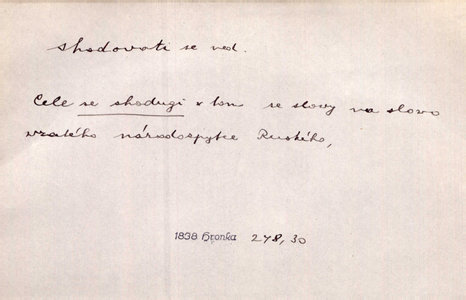 shodovati se ned.
Cele se shodugi v tom se slowy na slowo
wzatého národozpytce Ruského,
1838 Hronka 278,30